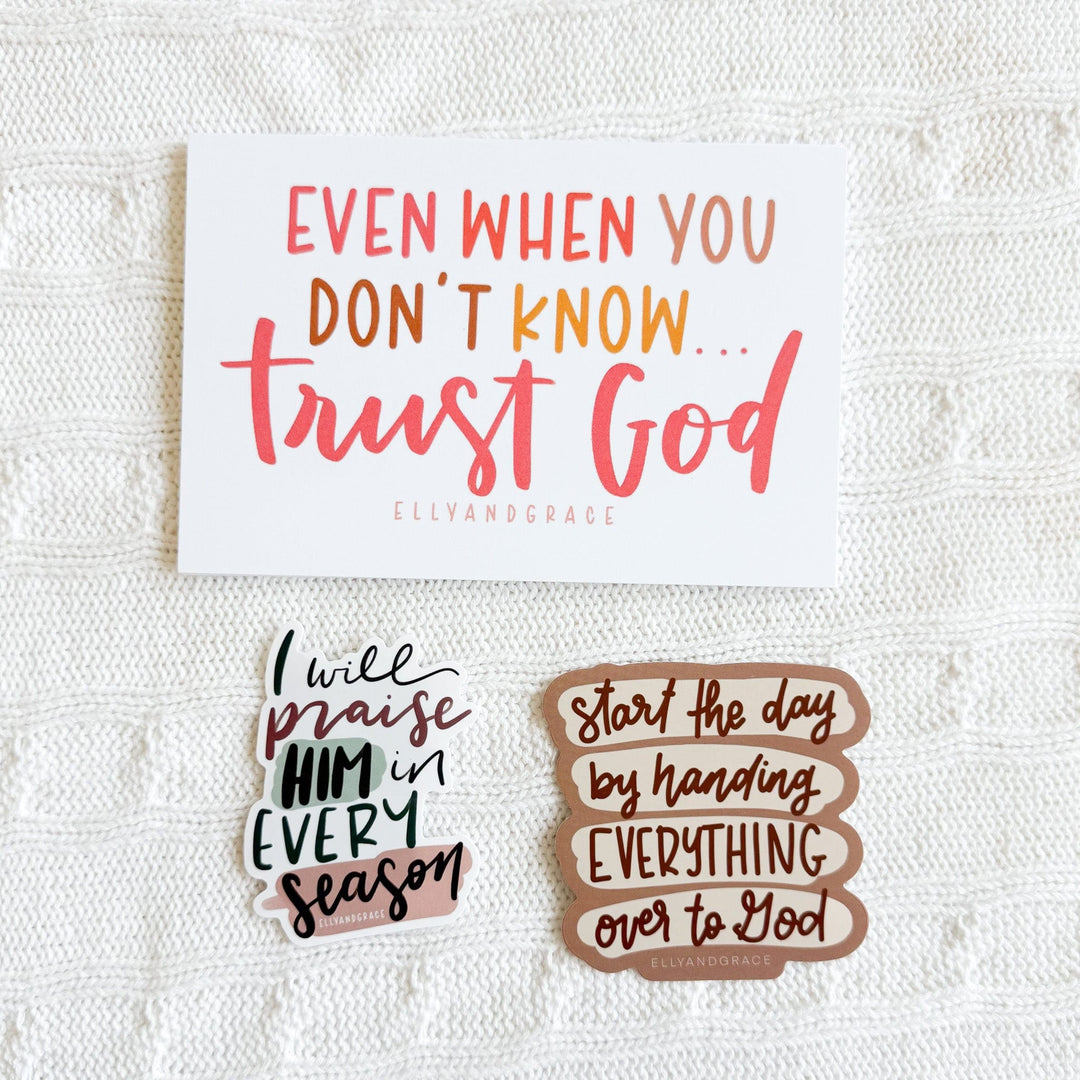 EVEN WHEN YOU
DON'T KNOW...
trust God
ELLYANDGRACE
I will
praise
HIM in
EVERY
season
ELLYANDGRACE
start the day
by handing
EVERYTHING
over to God
ELLYANDGRACE